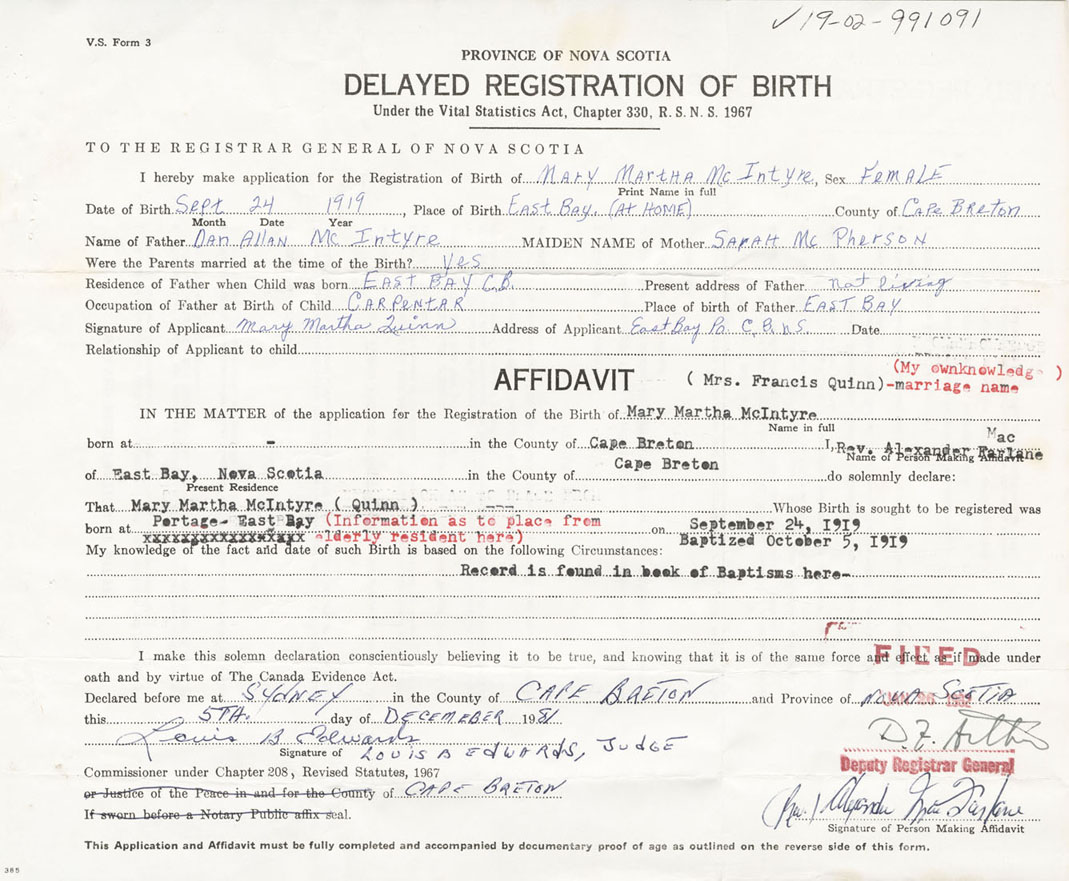 ✓19-02-991091
V.S. Form 3
PROVINCE OF NOVA SCOTIA
DELAYED REGISTRATION OF BIRTH
Under the Vital Statistics Act, Chapter 330, R. S. N. S. 1967
TO THE REGISTRAR GENERAL OF NOVA SCOTIA
I hereby make application for the Registration of Birth of Mary Martha Mc Intyre, Sex Female
Print Name in full
Date of Birth Sept 24 1919, Place of Birth East Bay. (At Home) County of Cape Breton
Month Date Year
Name of Father Dan Allan Mc Intyre MAIDEN NAME of Mother Sarah Mc Pherson
Were the Parents married at the time of the Birth? yes
Residence of Father when Child was born East Bay C.B. Present address of Father not living
Occupation of Father at Birth of Child Carpentar Place of birth of Father East Bay
Signature of Applicant Mary Martha Quinn Address of Applicant East Bay Po C.B. N.S. Date
Relationship of Applicant to child
(My ownknowledge )
AFFIDAVIT ( Mrs. Francis Quinn)-marriage name
IN THE MATTER of the application for the Registration of the Birth of Mary Martha McIntyre
Name in full
Mac
born at - in the County of Cape Breton I, Rev. Alexander Farlane
Name of Person Making Affidavit
of East Bay, Nova Scotia in the County of Cape Breton do solemnly declare:
Present Residence
That Mary Martha McIntyre ( Quinn ) Whose Birth is sought to be registered was
born at Portage- East Bay (Information as to place from on September 24, 1919
elderly resident here) Baptized October 5, 1919
My knowledge of the fact and date of such Birth is based on the following Circumstances:
Record is found in book of Baptisms here-
I make this solemn declaration conscientiously believing it to be true, and knowing that it is of the same force and effect as if made under
FILED
oath and by virtue of The Canada Evidence Act.
Declared before me at SYDNEY in the County of CAPE BRETON and Province of NOVA SCOTIA
this 5TH. day of DECEMEBER 1981
Louis B Edwards
Signature of LOUIS B EDWARDS, JUDGE
Deputy Registrar General
Commissioner under Chapter 208, Revised Statutes, 1967
or Justice of the Peace in and for the County of CAPE BRETON
If sworn before a Notary Public affix seal.
(Rev.) Alexander MacFarlane
Signature of Person Making Affidavit
This Application and Affidavit must be fully completed and accompanied by documentary proof of age as outlined on the reverse side of this form.
385